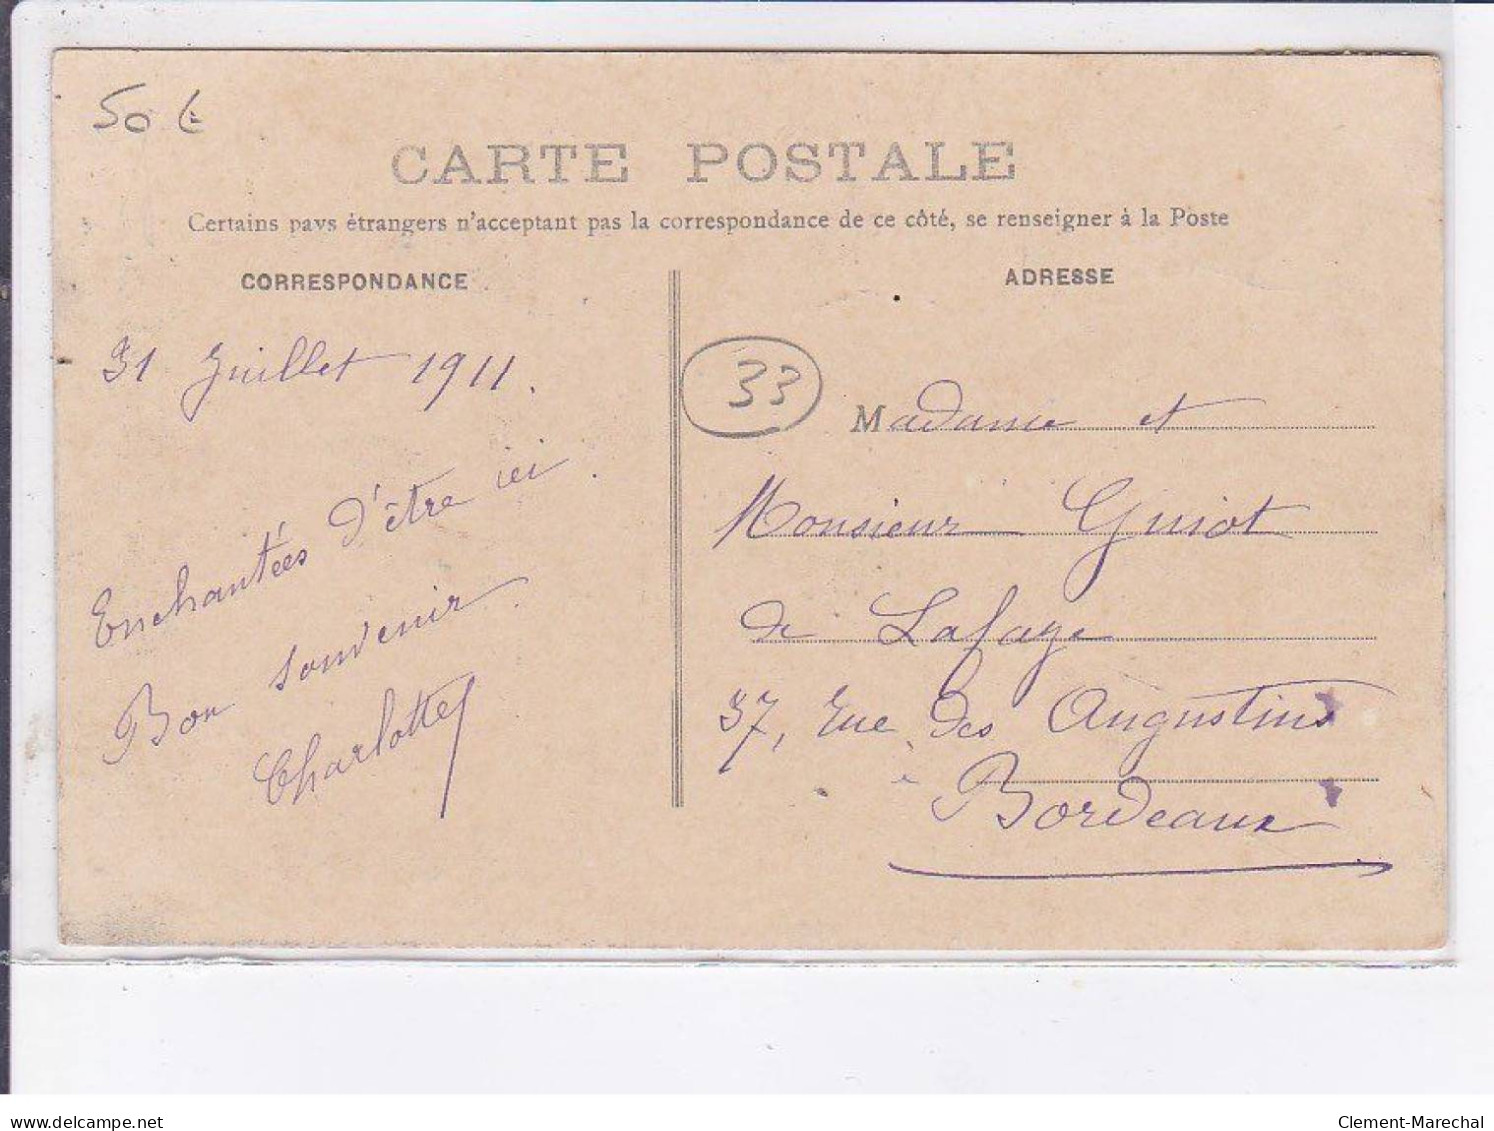 50 €
CARTE POSTALE
Certains pays étrangers n'acceptant pas la correspondance de ce côté, se renseigner à la Poste
CORRESPONDANCE
31 Juillet 1911.
Enchantées d'être ici.
Bon souvenir.
Charlotte
ADRESSE
33
Madame et
Monsieur Guiot
de Lafaye
37, Rue des Augustins
à
Bordeaux
delcampe.net
Clement-Marechal